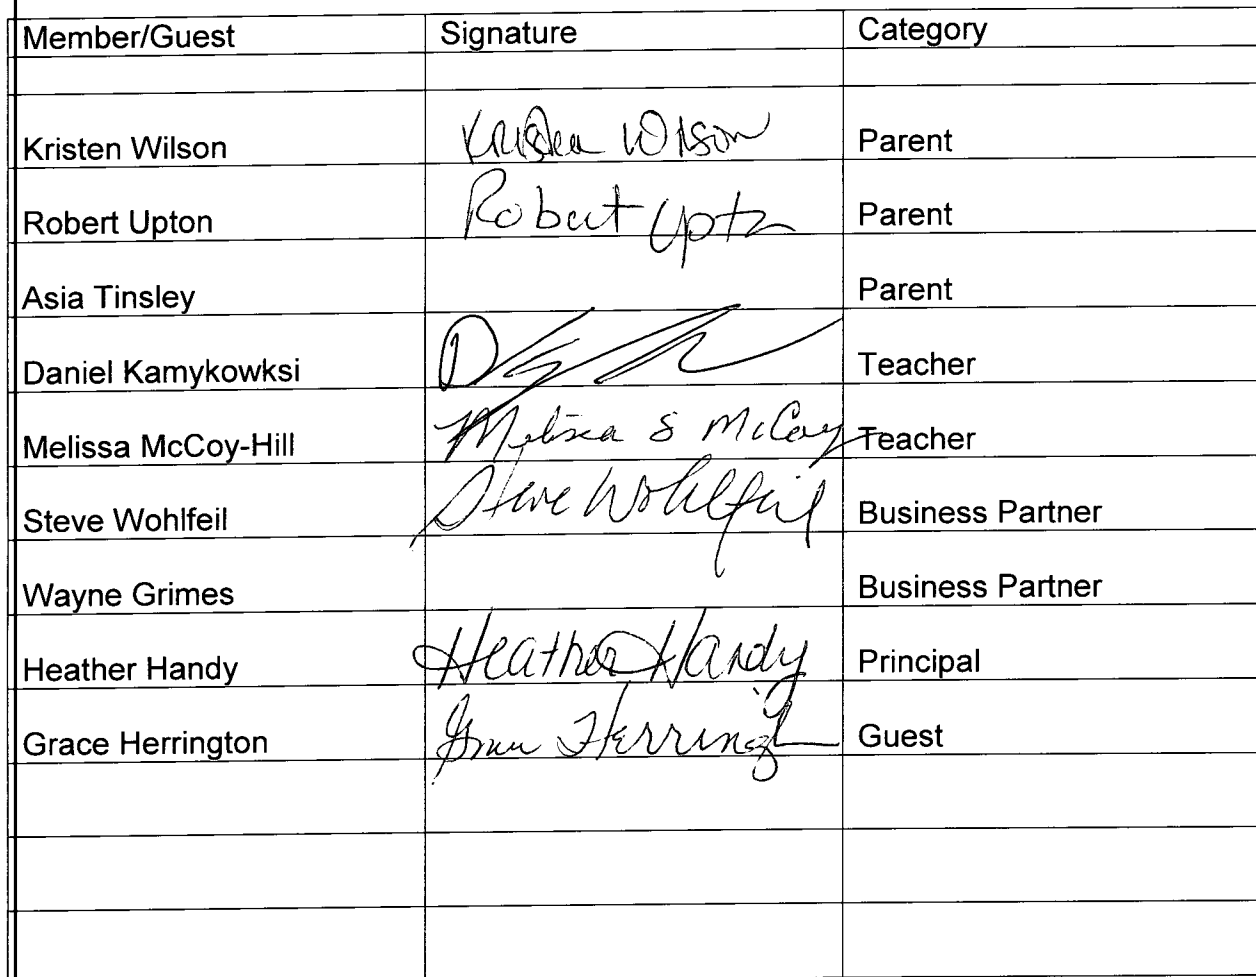 Member/Guest Signature Category
Kristen Wilson Kristen Wilson Parent
Robert Upton Robert Upton Parent
Asia Tinsley Parent
Daniel Kamykowksi Teacher
Melissa McCoy-Hill Melissa S McCoy Teacher
Steve Wohlfeil Steve Wohlfeil Business Partner
Wayne Grimes Business Partner
Heather Handy Heather Handy Principal
Grace Herrington Grace Herrington Guest